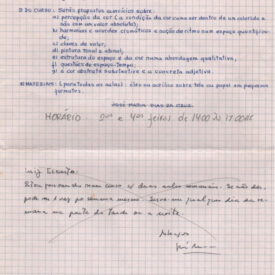 ② DO CURSO: Serão propostos exercícios sobre:
a) percepção da cor (a condição da cor como ser dentro de um colorido e não com um valor absoluto);
b) harmonias e acordes cromáticos e noção de ritmo num espaço quantificado;
c) claves de valor;
d) pintura tonal e atonal;
e) estrutura do espaço e da cor numa abordagem qualitativa,
f) questões de espaço-tempo;
g) a cor abstrata substantiva e a concreta adjetiva.
③ MATERIAIS: (para todas as aulas): óleo ou acrílico sobre tela ou papel em pequenos formatos.
JOSÉ MARIA DIAS DA CRUZ
HORÁRIO 2as e 4as feiras de 14:00 às 17:00 hs
Estou pensando num curso c/ duas aulas semanais. Se não der,
pode ser 1 vez por semana mesmo. Serve em qualquer dia da se-
mana na parte da tarde ou à noite